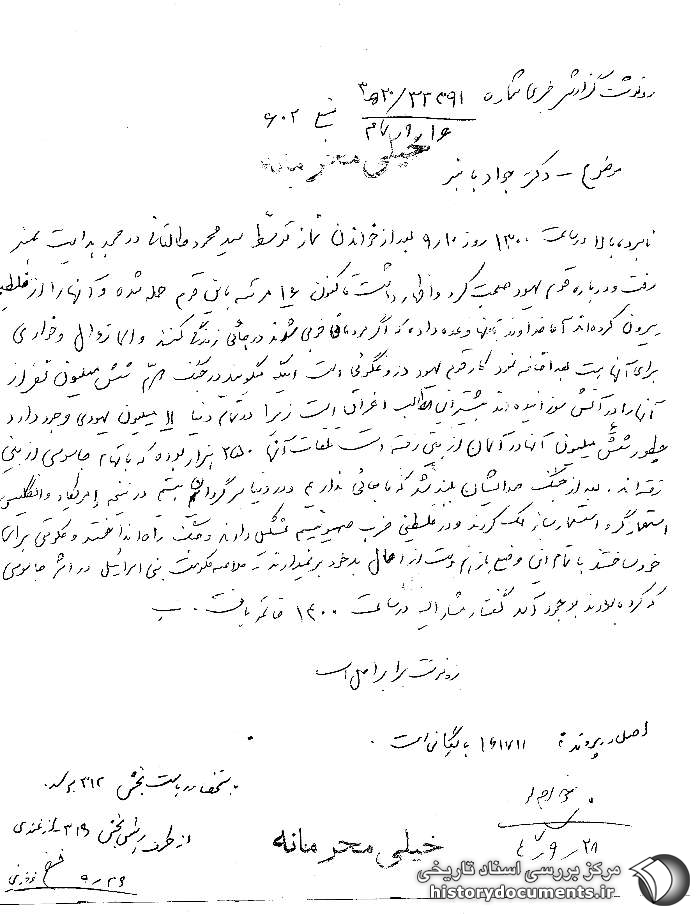 رونوشت گزارش خبری شماره ۳۲۴۹۱/۲۰ ه‍ ۳
منبع ۶۰۲
۱۶/۹/
خیلی محرمانه
موضوع – دکتر جواد باهنر
نامبرده بالا در ساعت ۱۳۰۰ روز ۱۰/۹ بعد از خواندن نماز توسط سید محمود طالقانی در مسجد هدایت به منبر
رفت و درباره قوم یهود صحبت کرد و اظهار داشت تاکنون ۱۶ مرتبه باین قوم حمله شده و آنها را از فلسطین
بیرون کرده‌اند اما خداوند بآنها وعده داده که اگر مردمان خوبی شوند در جائی زندگی کنند والا زوال و خواری
برای آنها هست بعد اضافه نمود کار قوم یهود دروغگوئی است اینکه میگویند در جنگ دوم شش میلیون نفر از
آنها را در آتش سوزانیده‌اند بیشتر این مطالب اغراق است زیرا در تمام دنیا ۱۱ میلیون یهودی وجود دارد
چطور شش میلیون آنها در آلمان از بین رفته است تلفات آنها ۲۵۰ هزار بوده که باتهام جاسوسی از بین
رفته‌اند. بعد از جنگ صدایشان بلند شد که ما جائی نداریم و در دنیا سرگردان هستیم در نتیجه امریکا و انگلیس
استعمارگر و استعمارساز کمک کردند و در فلسطین حزب صهیونیسم تشکیل دادند و جنگ راه انداختند و حکومتی برای
خود ساختند با تمام این وضع باز هم دست از اعمال بد خود برنمیدارند خلاصه حکومت بنی اسرائیل در اثر جاسوسی
که کرده بودند بوجود آمد گفتار مشارالیه در ساعت ۱۴۰۰ خاتمه یافت.
رونوشت برابر اصل است
اصل در پرونده ۱۶۱۷۱۱ بایگانی است.
به استحضار ریاست بخش ۳۱۲ برسد.
۲۸/۹/
از طرف رئیس بخش ۳۱۶
۹/۲۹
خیلی محرمانه
مرکز بررسی اسناد تاریخی
historydocuments.ir